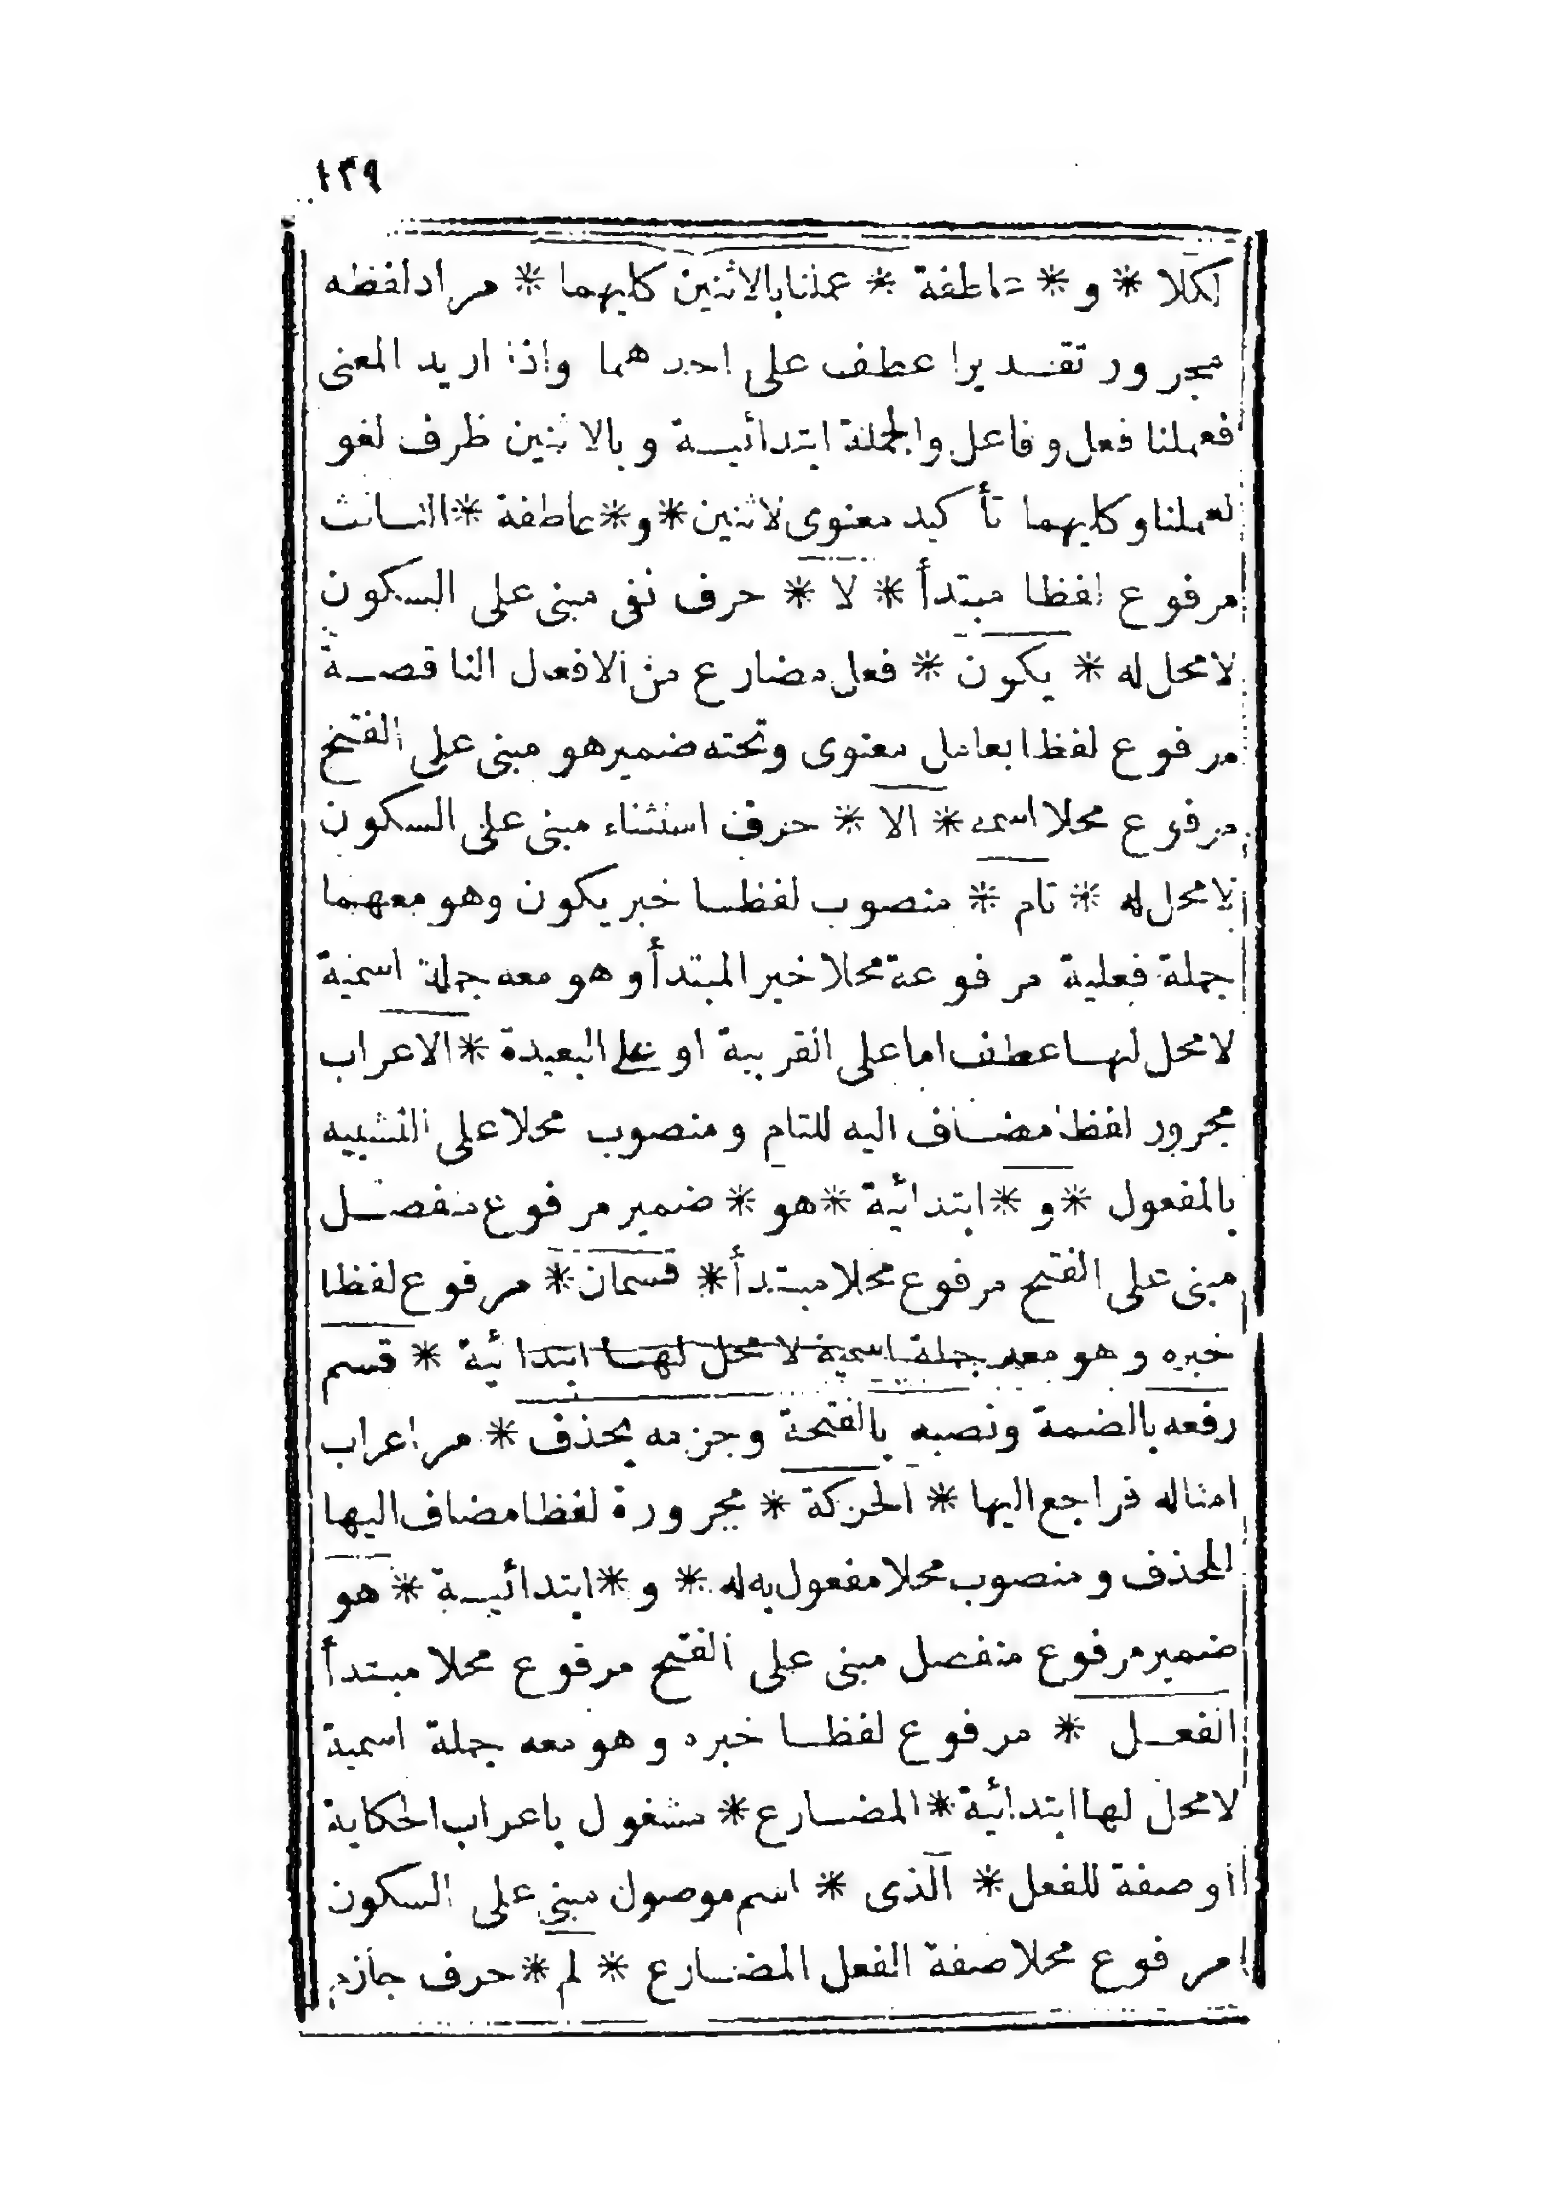 ١٣٩
لكلا * و * عاطفة * عملنا بالاثنين كليهما * مراد لفظه
مجرور تقديرا عطف على احدهما واذا اريد المعنى
فعملنا فعل وفاعل والجملة ابتدائية وبالاثنين ظرف لغو
لعملنا وكليهما تأكيد معنوى لاثنين * و * عاطفة * الثالث
مرفوع لفظا مبتدأ * لا * حرف نفى مبنى على السكون
لا محل له * يكون * فعل مضارع من الافعال الناقصة
مرفوع لفظا بعامل معنوى وتحته ضمير هو مبنى على الفتح
مرفوع محلا اسمه * الا * حرف استثناء مبنى على السكون
لا محل له * تام * منصوب لفظا خبر يكون وهو معهما
جملة فعلية مرفوعة محلا خبر المبتدأ وهو معه جملة اسمية
لا محل لها عطف اما على القريبة او على البعيدة * الاعراب
مجرور لفظا مضاف اليه للتام ومنصوب محلا على التشبيه
بالمفعول * و * ابتدائية * هو * ضمير مرفوع منفصل
مبنى على الفتح مرفوع محلا مبتدأ * قسمان * مرفوع لفظا
خبره وهو معه جملة اسمية لا محل لها ابتدائية * قسم
رفعه بالضمة ونصبه بالفتحة وجزمه بحذف * مر اعراب
امثاله فراجع اليها * الحركة * مجرورة لفظا مضاف اليها
للحذف ومنصوب محلا مفعول به له * و * ابتدائية * هو
ضمير مرفوع منفصل مبنى على الفتح مرفوع محلا مبتدأ
الفعل * مرفوع لفظا خبره وهو معه جملة اسمية
لا محل لها ابتدائية * المضارع * مشغول باعراب الحكاية
او صفة للفعل * الذى * اسم موصول مبنى على السكون
مرفوع محلا صفة الفعل المضارع * لم * حرف جازم